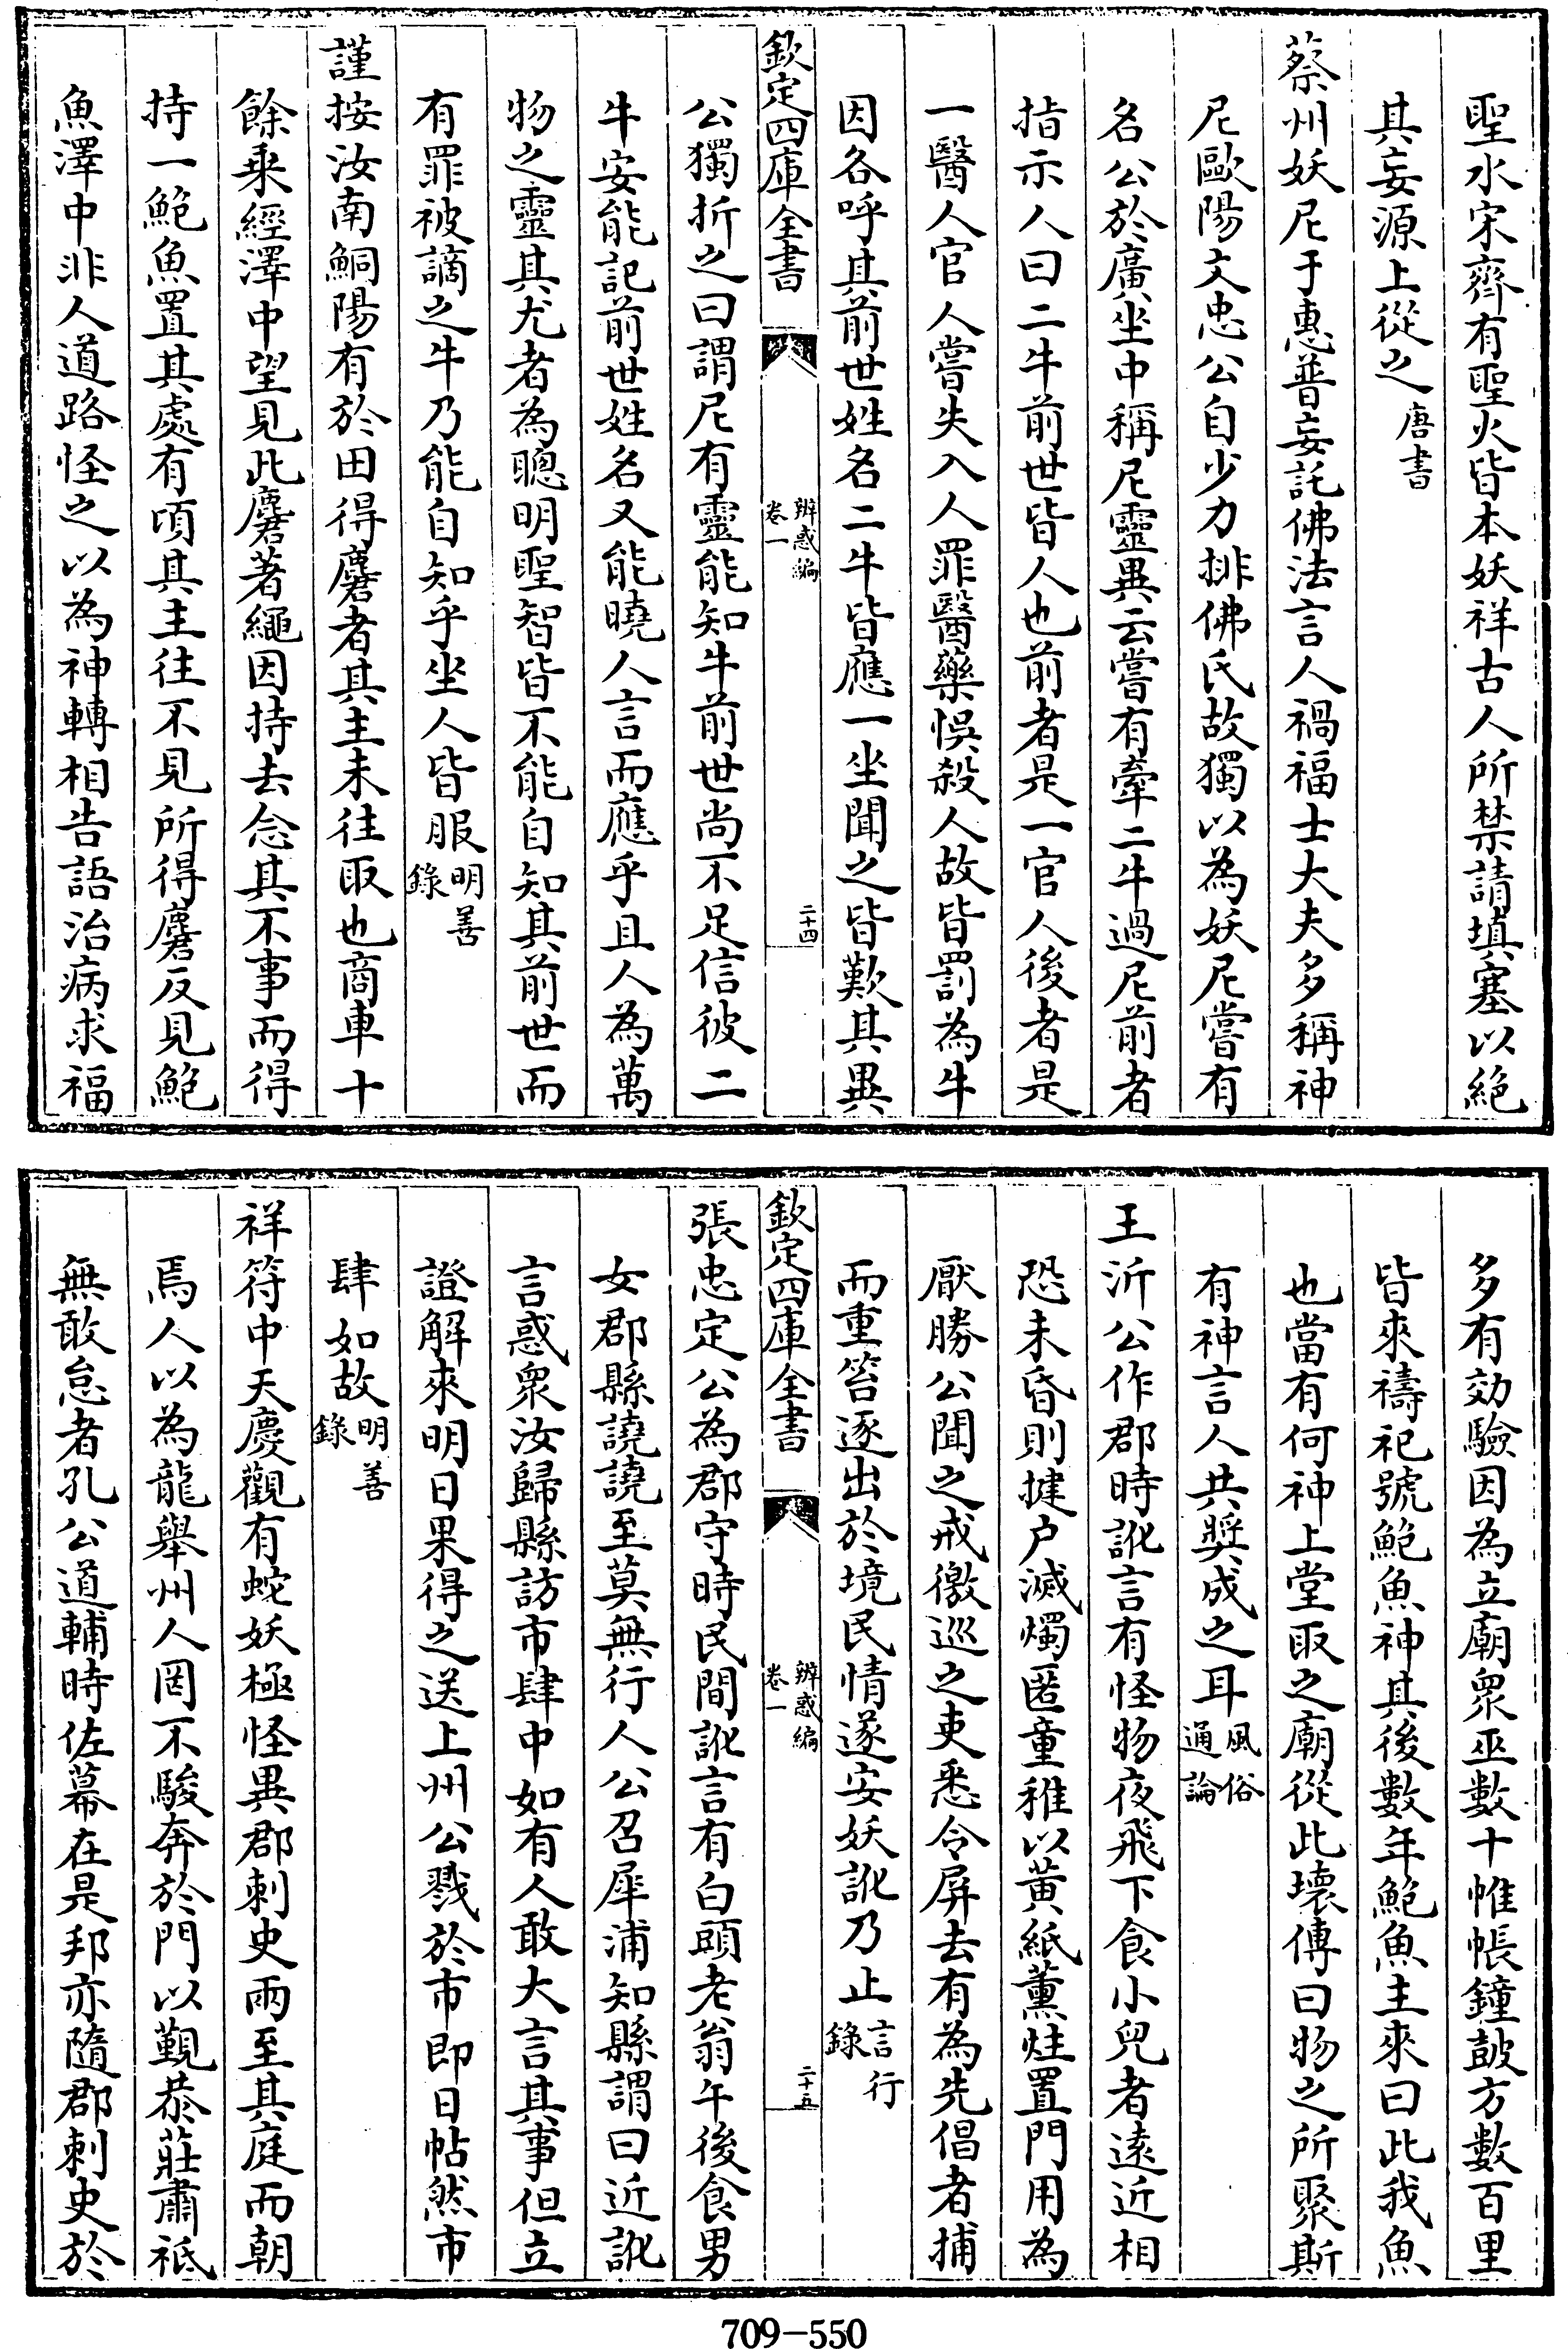 聖水宋齊有聖火皆本妖祥古人所禁請填塞以絕
其妄源上從之唐書
蔡州妖尼于惠普妄託佛法言人禍福士大夫多稱神
尼歐陽文忠公自少力排佛氏故獨以為妖尼嘗有
名公於廣坐中稱尼靈異云嘗有牽二牛過尼前者
指示人曰二牛前世皆人也前者是一官人後者是
一醫人官人嘗失入人罪醫藥悞殺人故皆罰為牛
因各呼其前世姓名二牛皆應一坐聞之皆歎其異
欽定四庫全書
辨惑編
卷一
二十四
公獨折之曰謂尼有靈能知牛前世尚不足信彼二
牛安能記前世姓名又能曉人言而應乎且人為萬
物之靈其尤者為聰明聖智皆不能自知其前世而
有罪被謫之牛乃能自知乎坐人皆服明善錄
謹按汝南鮦陽有於田得麏者其主未往取也商車十
餘乘經澤中望見此麏著繩因持去念其不事而得
持一鮑魚置其處有頃其主往不見所得麏反見鮑
魚澤中非人道路怪之以為神轉相告語治病求福
多有効驗因為立廟眾巫數十帷帳鐘鼓方數百里
皆來禱祀號鮑魚神其後數年鮑魚主來曰此我魚
也當有何神上堂取之廟從此壞傳曰物之所聚斯
有神言人共奬成之耳風俗通論
王沂公作郡時訛言有怪物夜飛下食小兒者遠近相
恐未昏則揵户滅燭匿童稚以黃紙薰炷置門用為
厭勝公聞之戒徼巡之吏悉令屏去有為先倡者捕
而重笞逐出於境民情遂安妖訛乃止言行錄
欽定四庫全書
辨惑編
卷一
二十五
張忠定公為郡守時民間訛言有白頭老翁午後食男
女郡縣譊譊至莫無行人公召犀浦知縣謂曰近訛
言惑眾汝歸縣訪市肆中如有人敢大言其事但立
證解來明日果得之送上州公戮於市即日帖然市
肆如故明善錄
祥符中天慶觀有蛇妖極怪異郡刺史兩至其庭而朝
焉人以為龍舉州人罔不駿奔於門以覲恭莊肅祗
無敢怠者孔公道輔時佐幕在是邦亦隨郡刺史於
709-550